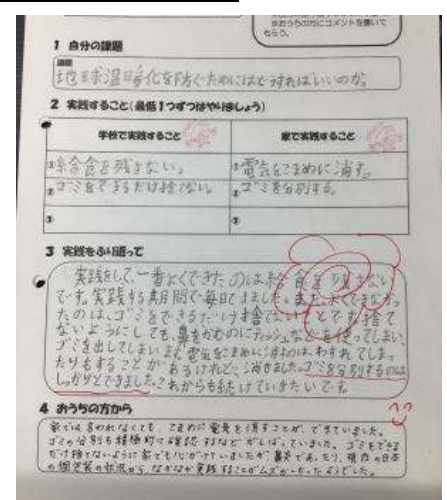 ※おうちの方にコメントを書いて
もらう。
1 自分の課題
課題
地球温暖化を防ぐためにはどうすればいいのか。
2 実践すること(最低1つずつはやりましょう)
学校で実践すること 家で実践すること
①給食を残さない。 ①電気をこまめに消す。
②ゴミをできるだけ捨てない。 ②ゴミを分別する。
③ ③
3 実践をふり返って
実践をして、一番よくできたのは給食を残さない
です。実践する期間で毎日できました。また、よくできなかっ
たのは、ゴミをできるだけ捨てないことです。捨て
ないようにしても、鼻をかむのにティッシュなどを使ってしまい、
ゴミを出してしまいます。電気をこまめに消すのは、わすれてしまっ
たりもすることがあるけれど、消せました。ゴミを分別するのは
しっかりとできました。これからも続けていきたいです。
4 おうちの方から
家では言われなくても、こまめに電気を消すことが、できていました。
ゴミの分別も積極的に確認するなどがんばっていました。ゴミをできる
だけ捨てないように家でも心がけていましたが、鼻炎であったり、現在の日本
の個包装の状況から、なかなか実践することがムズかしかったようでした。